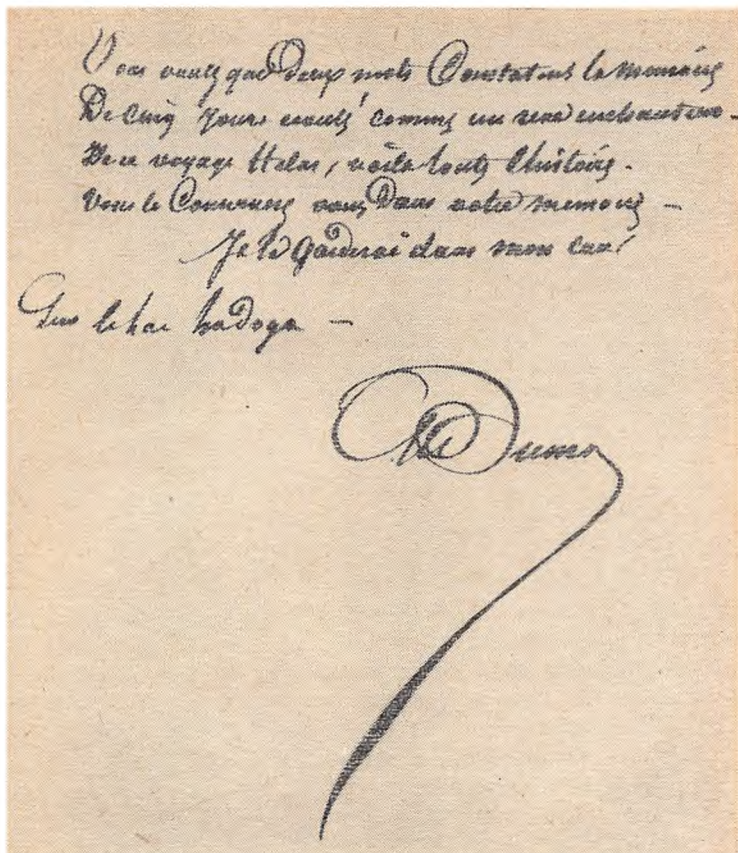 Vous voulez que deux mots Constatent la memoire
De cinq jours écoulés comme un reve enchanteur -
De ce voyage Helas, voila toute l'histoire -
Vous le Conserverez vous, Dans votre memoire -
Je le garderai dans mon cœur
Sur le lac Ladoga -
Alex Dumas